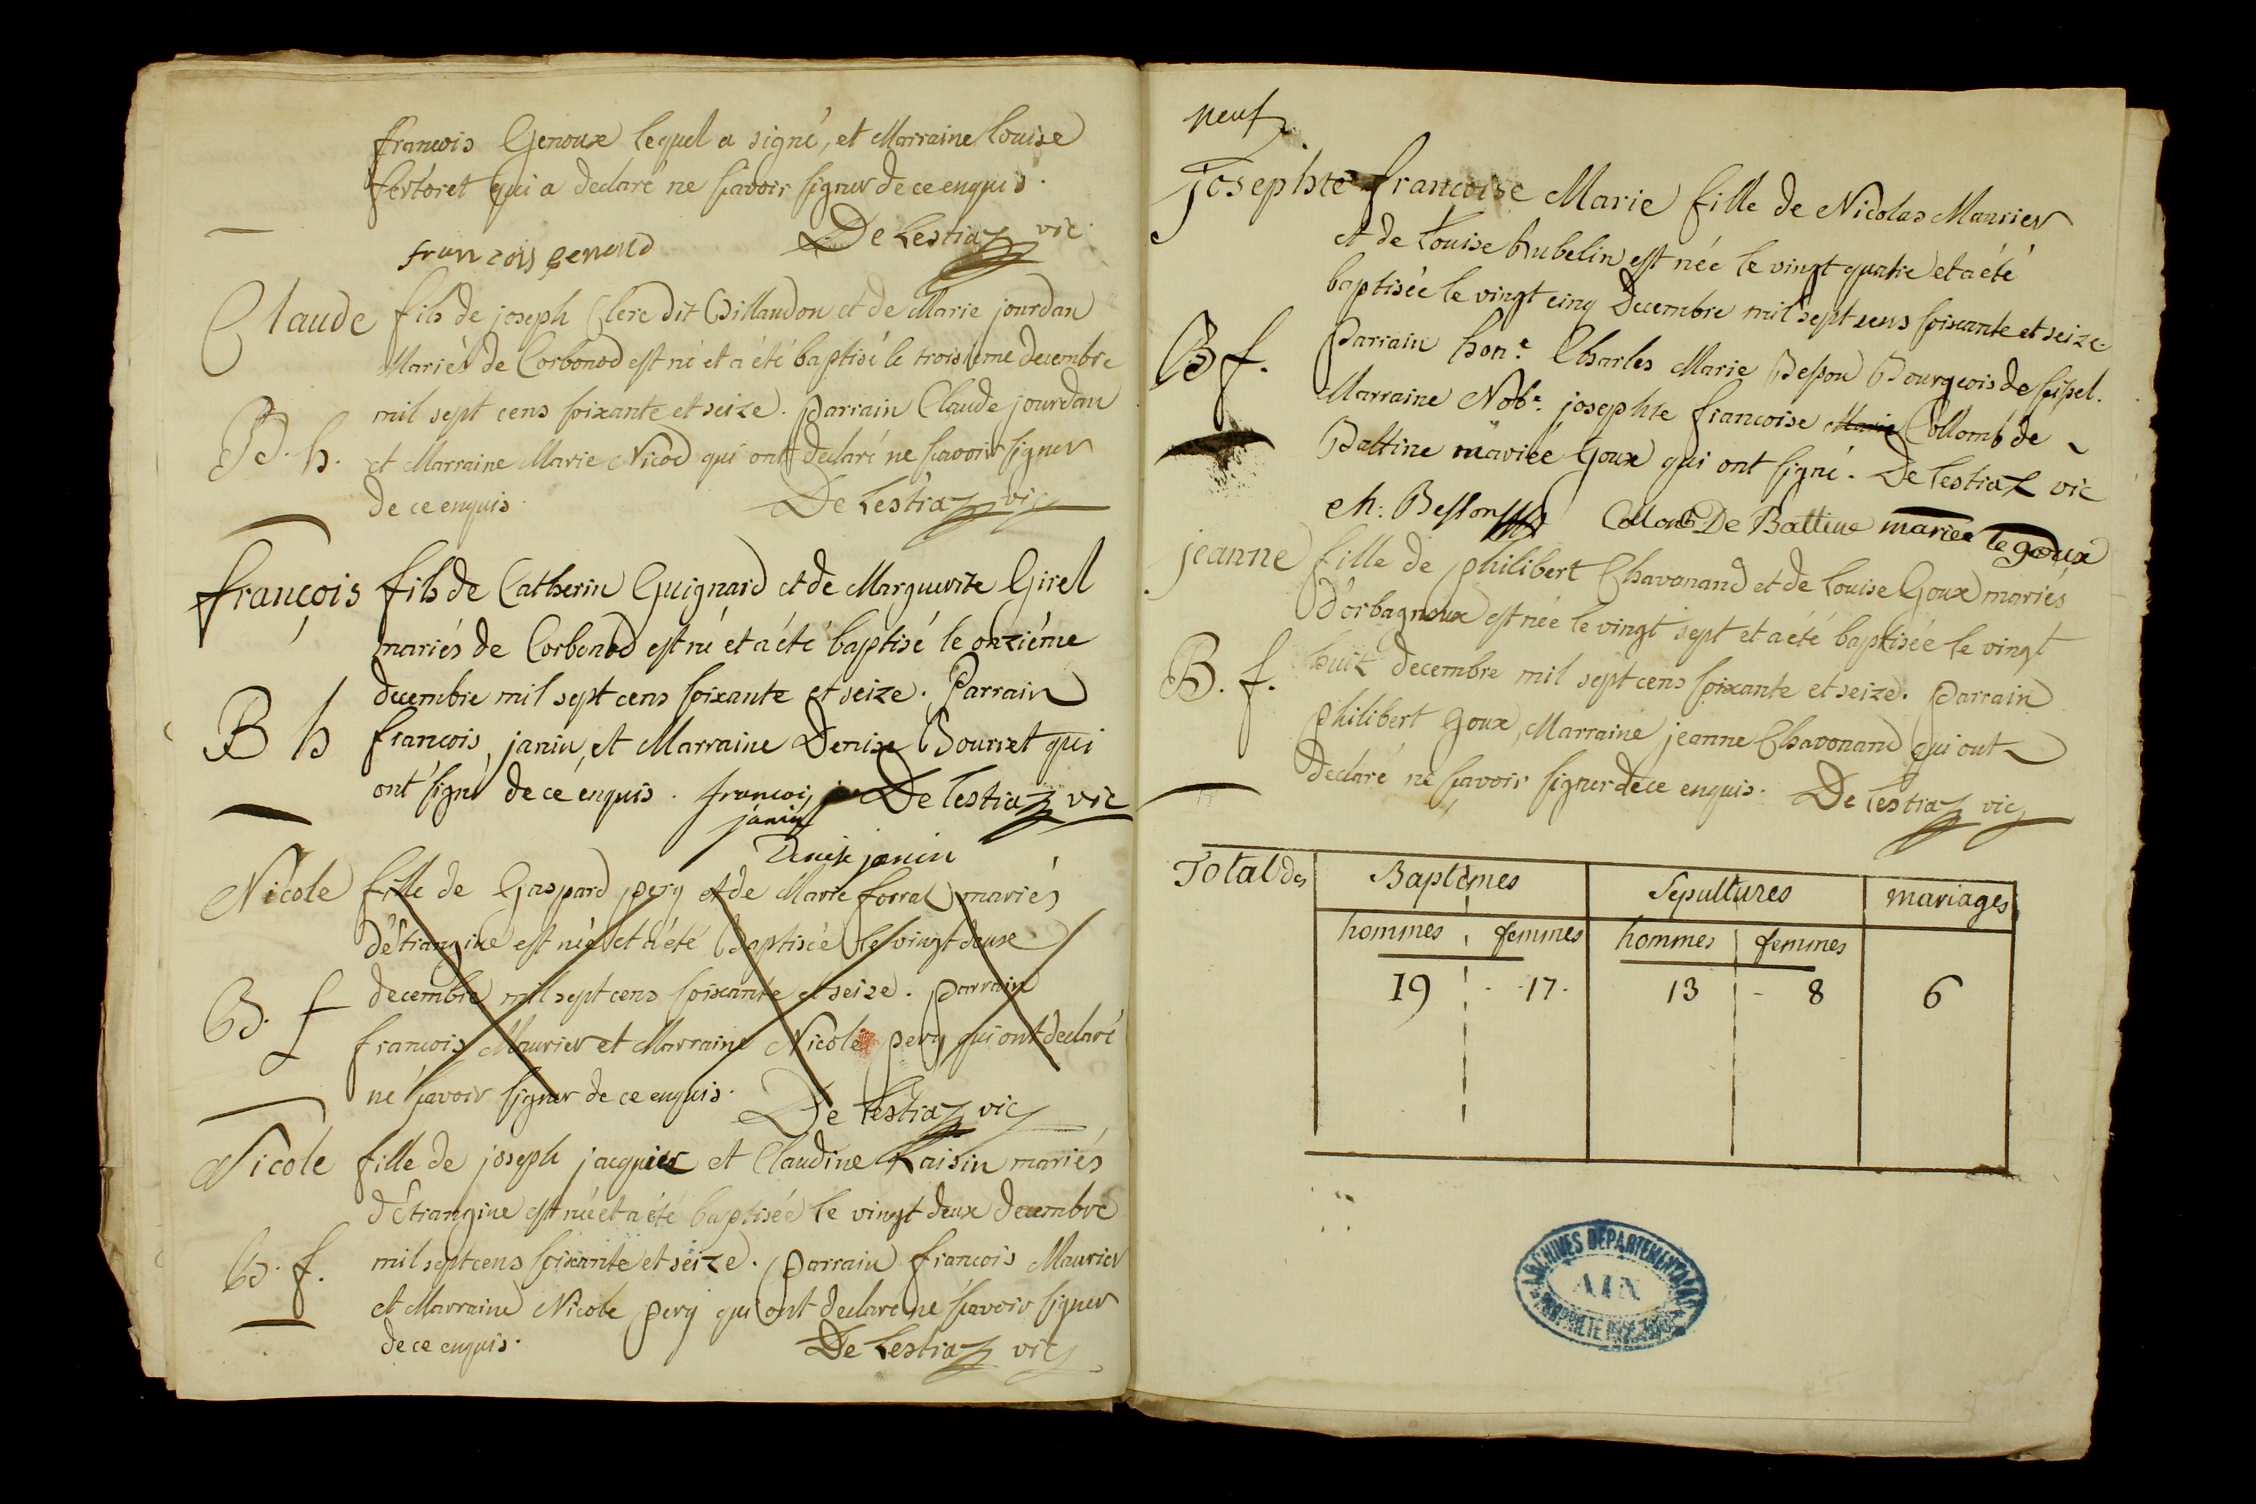 francois Genoux lequel a signé, et Marraine Louise
fertoret qui a declaré ne scavoir signer de ce enquis.
françois genoud De Lestraz vic
Claude fils de joseph Clerc dit Billaudon et de Marie jourdan
Mariés de Corbonod est né et a été baptisé le troisième decembre
mil sept cens soixante et seize. parrain Claude jourdan
B. h. et Marraine Marie Nicod qui ont declaré ne scavoir signer
de ce enquis. De Lestraz vic
françois fils de Catherin Guignard et de Marguerite Girel
mariés de Corbonod est né et a été baptisé le onziéme
decembre mil sept cens soixante et seize. Parrain
B h francois janin, et Marraine Denise Bourret qui
ont signé de ce enquis. francois De Lestraz vic
janin
Denise janin
Nicole fille de Gaspard pery et de Marie forral mariés
d'Etrangine est née et a été Baptisée le vingt deux
decembre mil sept cens soixante et seize. parrain
B. f francois Maurier et Marraine Nicole pery qui ont declaré
ne scavoir signer de ce enquis.
De Lestraz vic
Nicole fille de joseph jacquier et Claudine Raisin mariés
d'Etrangine est née et a été baptisée le vingt deux decembre
B. f. mil sept cens soixante et seize. parrain francois Maurier
et Marraine Nicole pery qui ont declaré ne scavoir signer
de ce enquis. De Lestraz vic
neuf
Josephte francoise Marie fille de Nicolas Maurier
et de Louise hubelin est née le vingt quatre et a été
baptisée le vingt cinq Decembre mil sept cens soixante et seize.
B f. Parrain hon.e Charles Marie Besson Bourgeois de seissel.
Marraine Nob.e josephte francoise Marie Collomb de
Battine mariée Goux qui ont signé. De Lestraz vic
ch: Besson Collomb De Battine mariee le goux
jeanne fille de philibert Chavonand et de Louise Goux mariés
D'orbagnoux est née le vingt sept et a été baptisée le vingt
B. f. huit decembre mil sept cens soixante et seize. parrain
philibert Goux, Marraine jeanne Chavonand qui ont
declaré ne scavoir signer de ce enquis. De Lestraz vic
Total des Baptêmes Sepultures mariages
hommes femmes hommes femmes
19 17 13 8 6
ARCHIVES DEPARTEMENTALES
AIN
PROPRIETE PUBLIQUE